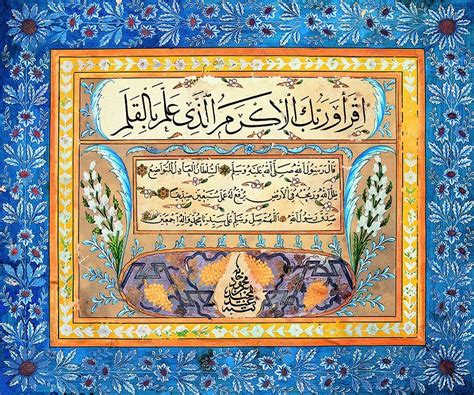 اقرأ وربك الأكرم الذي علم بالقلم
قال رسول الله صلى الله عليه وسلم السلطان العادل المتواضع
ظل الله ورمحه في الأرض يرفع له عمل سبعين صديقا
صدق رسول الله اللهم صل وسلم على سيدنا محمد وآله أجمعين